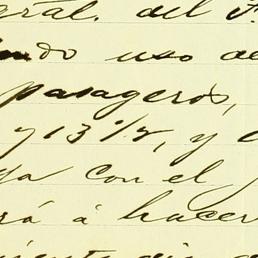 gral. del F
ndo uso de
pasageros,
y 13 1/2, y
con el
rá á hacer